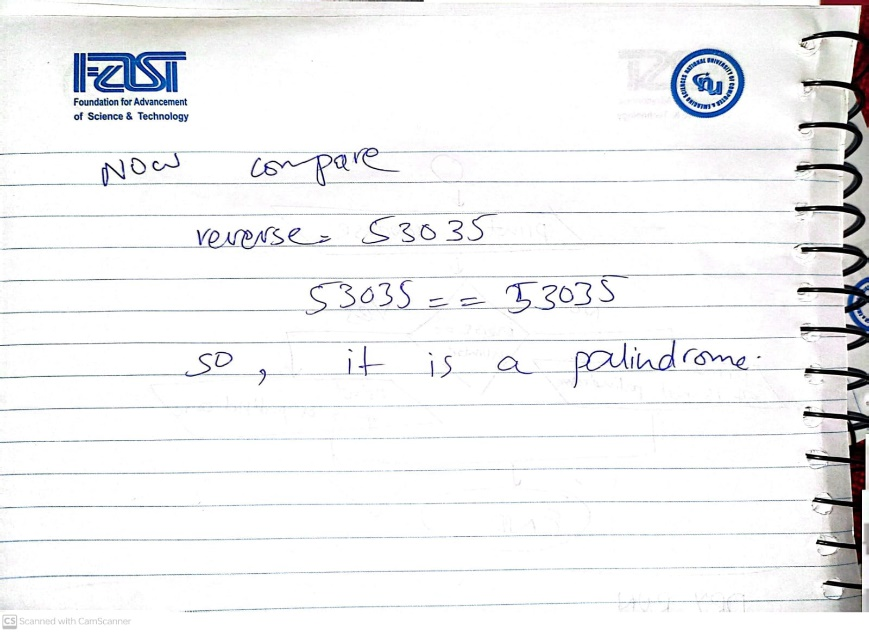 FAST
Foundation for Advancement
of Science & Technology
NATIONAL UNIVERSITY OF COMPUTER & EMERGING SCIENCES
Now compare
reverse = 53035
53035 == 53035
so, it is a palindrome.
CS Scanned with CamScanner